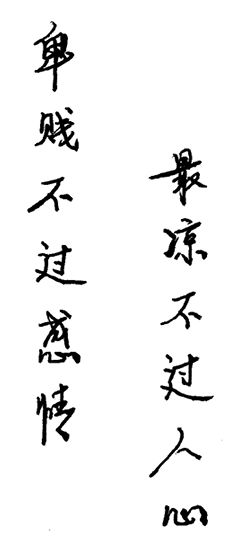 卑贱不过感情
最凉不过人心